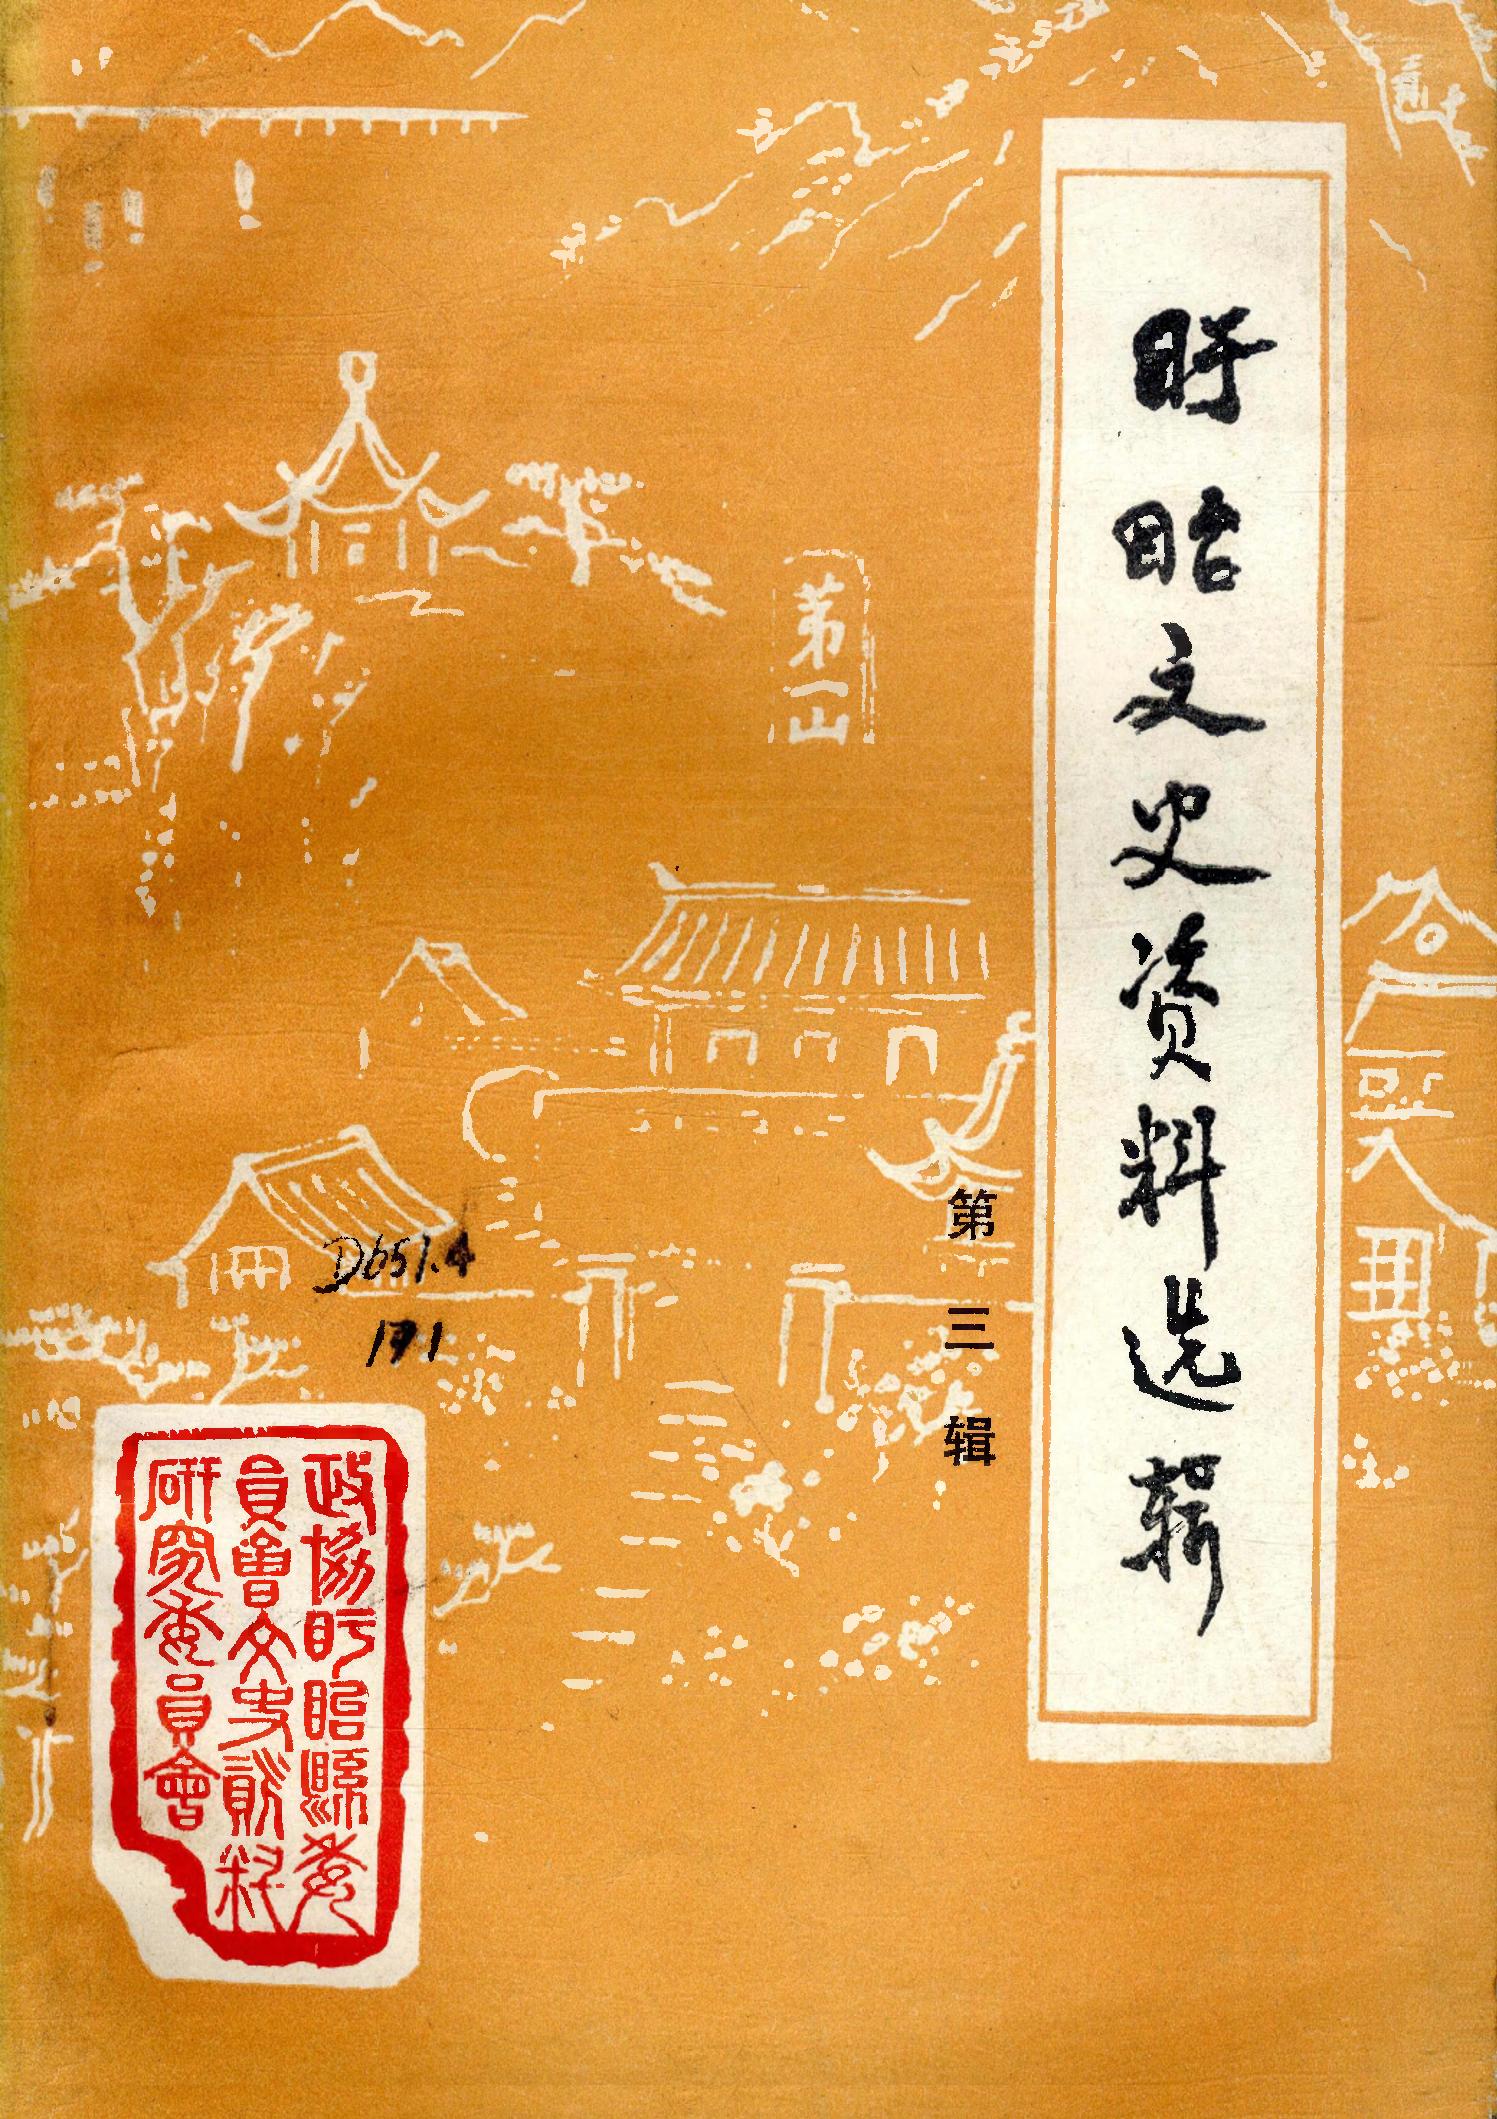 盱眙文史资料选辑
第三辑
第一山
D651.4
171
政協盱眙縣委
員會文史資料
研究委員會